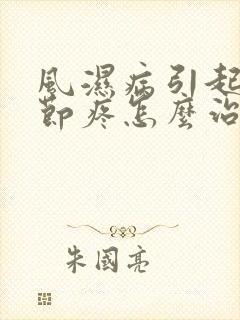 風濕病引起
節疼怎麼治
朱國亮